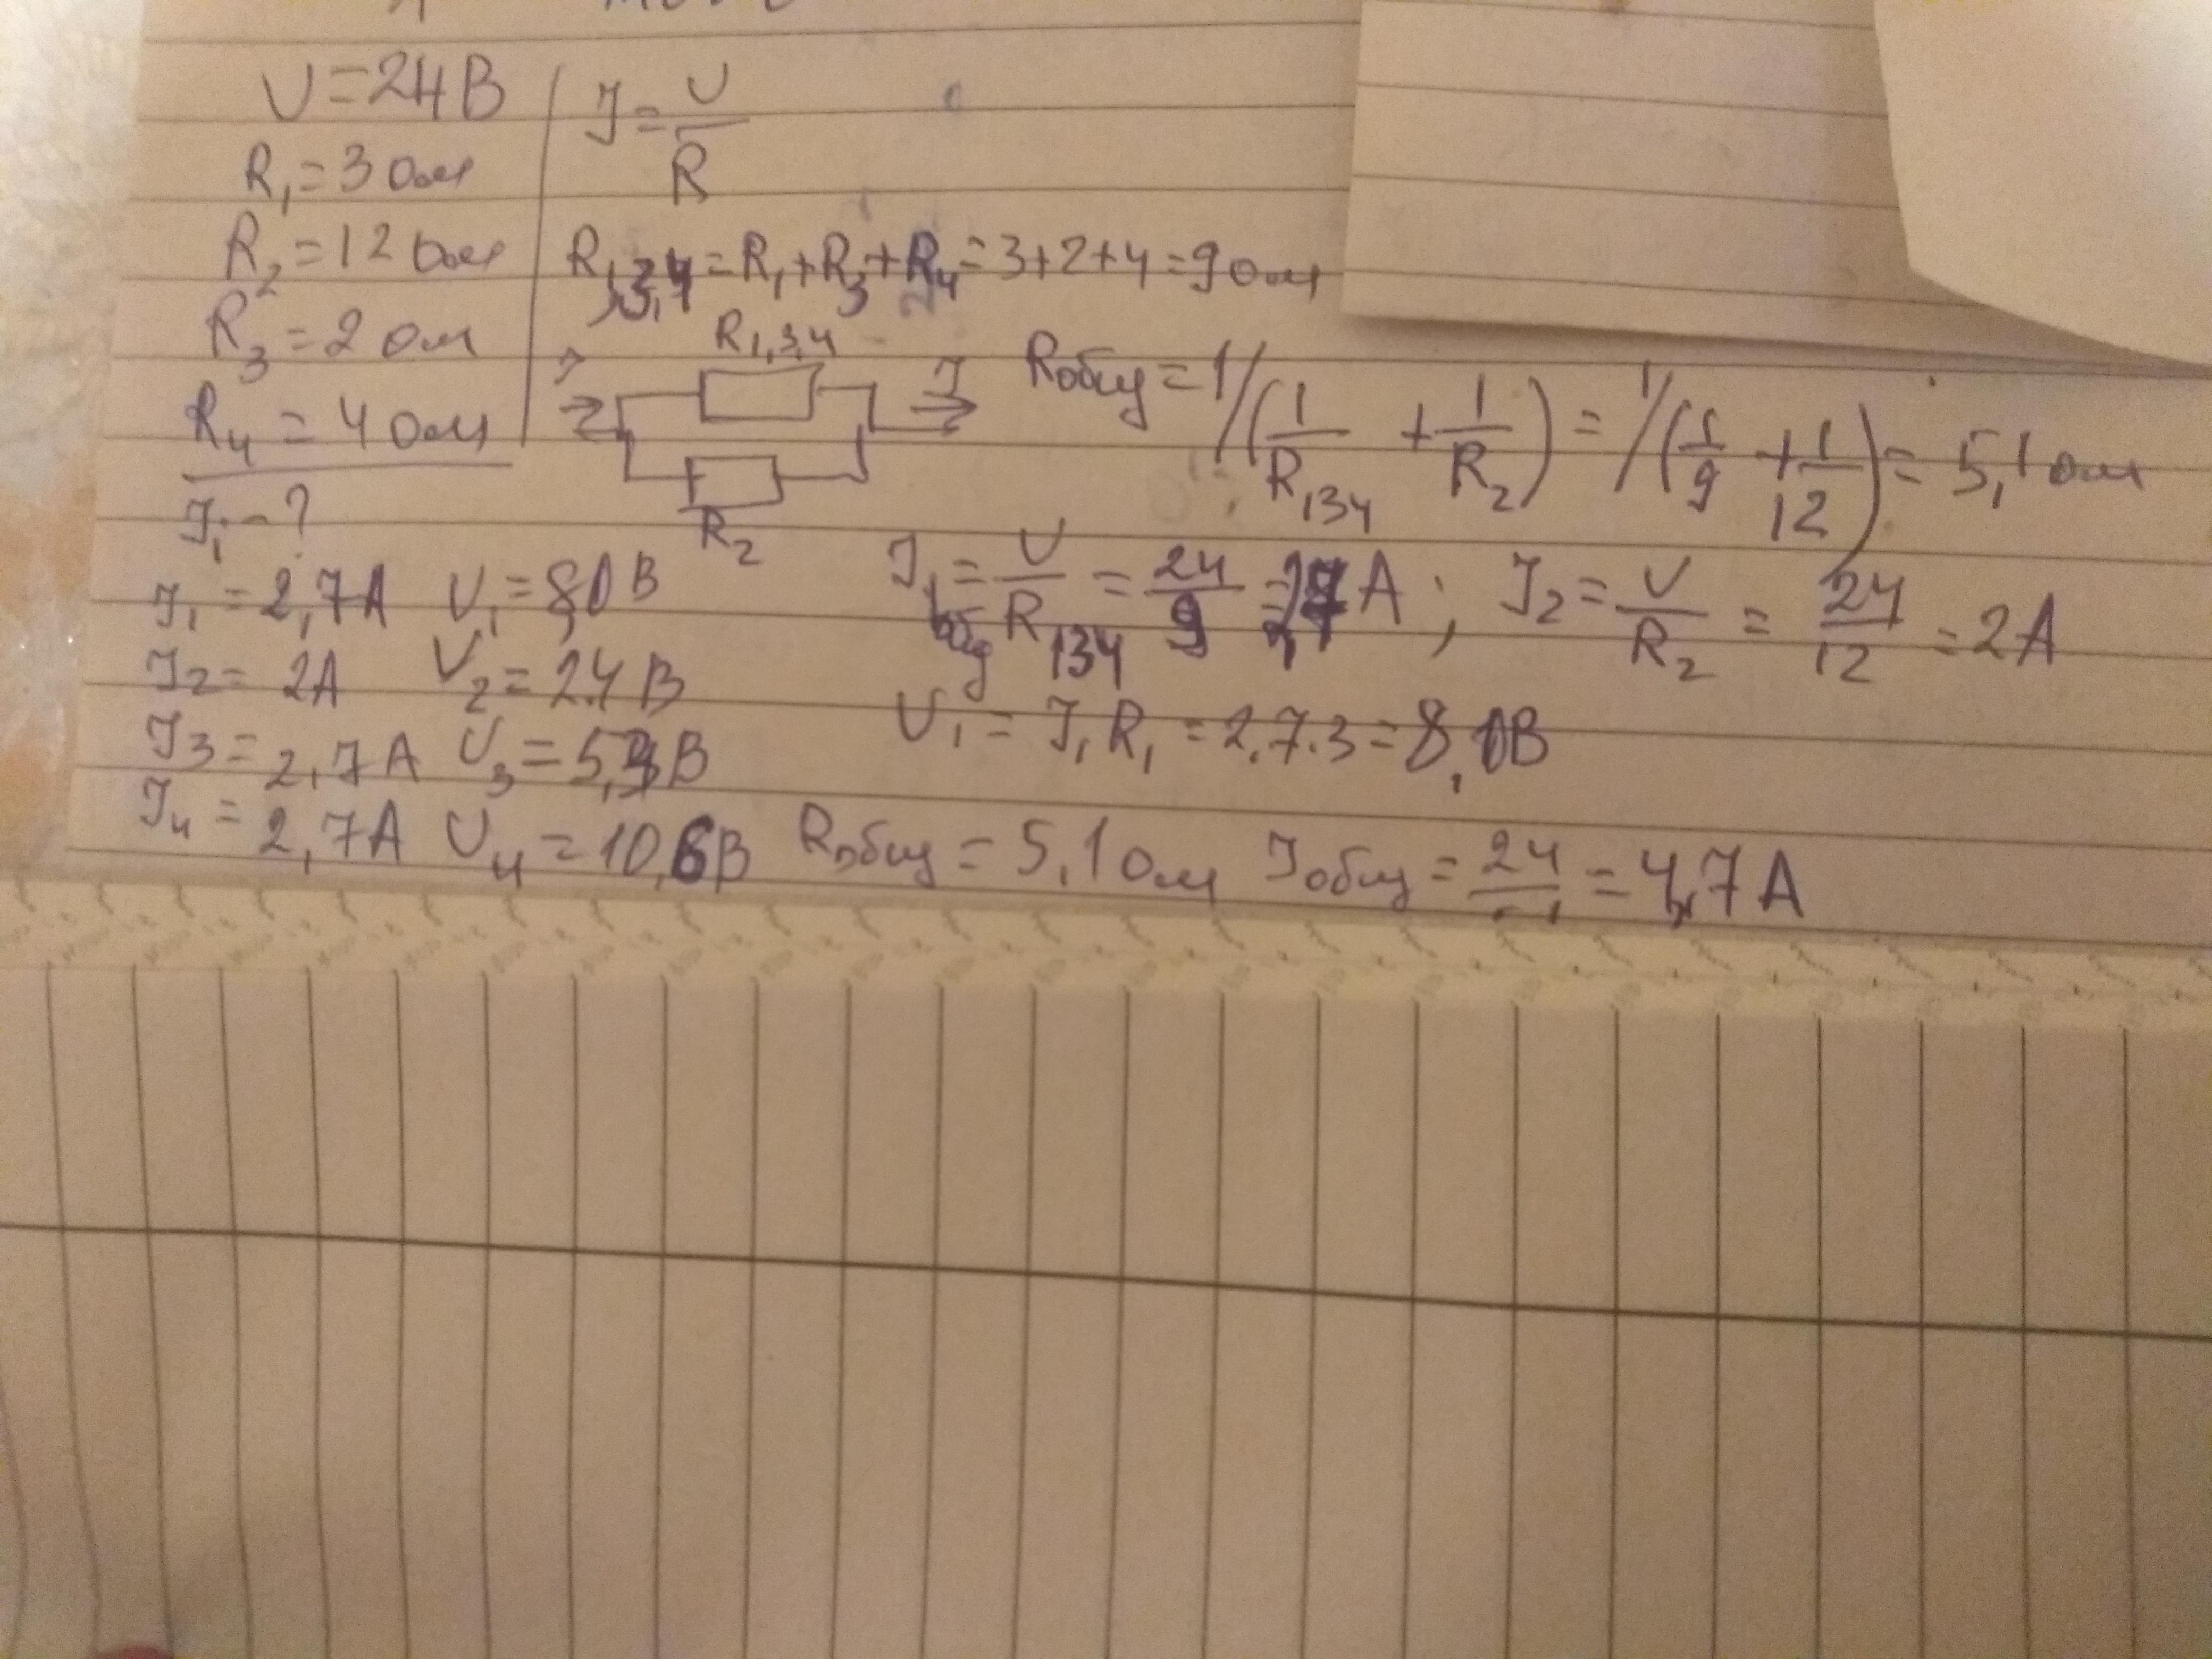 U = 24 В
R₁ = 3 Ом
R₂ = 12 Ом
R₃ = 2 Ом
R₄ = 4 Ом
I₁ - ?
I = U/R
R₁,₃,₄ = R₁ + R₃ + R₄ = 3+2+4 = 9 Ом
R₁,₃,₄
I
R₂
Rобщ = 1/(1/R₁₃₄ + 1/R₂) = 1/(1/9 + 1/12) = 5,1 Ом
I₁ = U/R₁₃₄ = 24/9 = 2,7 А ; I₂ = U/R₂ = 24/12 = 2А
U₁ = I₁R₁ = 2,7·3 = 8,1В
I₁ = 2,7А U₁ = 8,1В
I₂ = 2А U₂ = 24 В
I₃ = 2,7А U₃ = 5,4В
I₄ = 2,7А U₄ = 10,6В
Rобщ = 5,1 Ом Iобщ = 24/ = 4,7 А